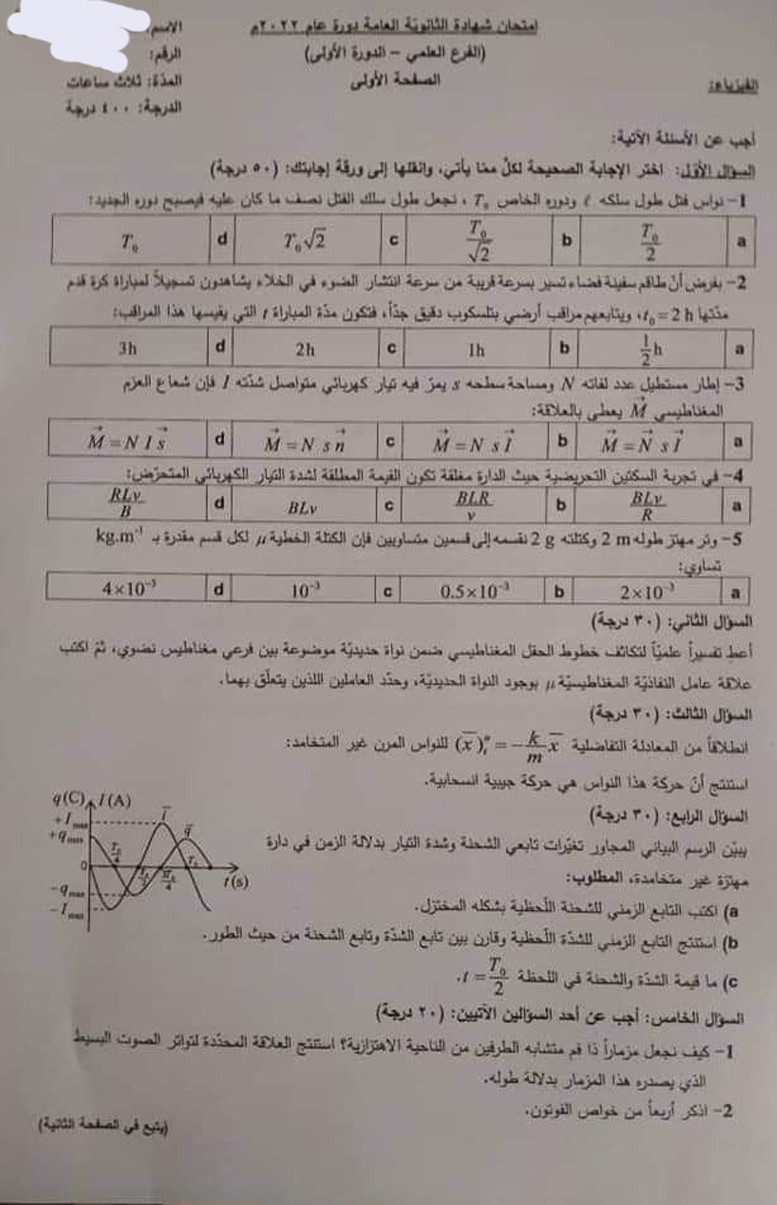 امتحان شهادة الثانوية العامة دورة عام ٢٠٢٢م
(الفرع العلمي – الدورة الأولى)
الصفحة الأولى
الاسم:
الرقم:
المدة: ثلاث ساعات
الدرجة: ٤٠٠ درجة
الفيزياء:
أجب عن الأسئلة الآتية:
السؤال الأول: اختر الإجابة الصحيحة لكلٍّ ممّا يأتي، وانقلها إلى ورقة إجابتك: (٥٠ درجة)
1– نواس فتل طول سلكه ℓ ودوره الخاص T₀ ، نجعل طول سلك الفتل نصف ما كان عليه فيصبح دوره الجديد:
a T₀/2 b T₀/√2 c T₀√2 d T₀
2– بفرض أنّ طاقم سفينة فضاء تسير بسرعة قريبة من سرعة انتشار الضوء في الخلاء يشاهدون تسجيلاً لمباراة كرة قدم
مدّتها t₀ = 2 h، ويتابعهم مراقب أرضي بتلسكوب دقيق جدّاً، فتكون مدّة المباراة t التي يقيسها هذا المراقب:
a 1/2 h b 1h c 2h d 3h
3– إطار مستطيل عدد لفاته N ومساحة سطحه s يمرّ فيه تيار كهربائي متواصل شدّته I فإن شعاع العزم
المغناطيسي M⃗ يعطى بالعلاقة:
a M⃗ = N⃗ s I⃗ b M⃗ = N s I⃗ c M⃗ = N s n⃗ d M⃗ = N I s⃗
4– في تجربة السكتين التحريضية حيث الدارة مغلقة تكون القيمة المطلقة لشدة التيار الكهربائي المتحرّض:
a BLv/R b BLR/v c BLv d RLv/B
5– وتر مهتز طوله 2 m وكتلته 2 g نقسمه إلى قسمين متساويين فإن الكتلة الخطية μ لكل قسم مقدرة بـ kg.m⁻¹
تساوي:
a 2×10⁻³ b 0.5×10⁻³ c 10⁻³ d 4×10⁻³
السؤال الثاني: (٣٠ درجة)
أعطِ تفسيراً علميّاً لتكاثف خطوط الحقل المغناطيسي ضمن نواة حديديّة موضوعة بين فرعي مغناطيس نضوي، ثمّ اكتب
علاقة عامل النفاذيّة المغناطيسيّة μ بوجود النواة الحديديّة، وحدّد العاملين اللذين يتعلّق بهما.
السؤال الثالث: (٣٠ درجة)
انطلاقاً من المعادلة التفاضلية (x̄)″ₜ = −(k/m) x̄ للنواس المرن غير المتخامد:
استنتج أنّ حركة هذا النواس هي حركة جيبية انسحابية.
السؤال الرابع: (٣٠ درجة)
يبيّن الرسم البياني المجاور تغيّرات تابعي الشحنة وشدة التيار بدلالة الزمن في دارة
مهتزة غير متخامدة، المطلوب:
a) اكتب التابع الزمني للشحنة اللحظية بشكله المختزل.
b) استنتج التابع الزمني للشدّة اللّحظية وقارن بين تابع الشدّة وتابع الشحنة من حيث الطور.
c) ما قيمة الشدّة والشحنة في اللحظة t = T₀/2.
q(C) I(A)
+I max
+q max
0
−q max
−I max
ī
q̄
T₀/4
T₀/2
3T₀/4
T₀
t(s)
السؤال الخامس: أجب عن أحد السؤالين الآتيين: (٢٠ درجة)
1– كيف نجعل مزماراً ذا فم متشابه الطرفين من الناحية الاهتزازية؟ استنتج العلاقة المحدّدة لتواتر الصوت البسيط
الذي يصدره هذا المزمار بدلالة طوله.
2– اذكر أربعاً من خواص الفوتون.
(يتبع في الصفحة الثانية)